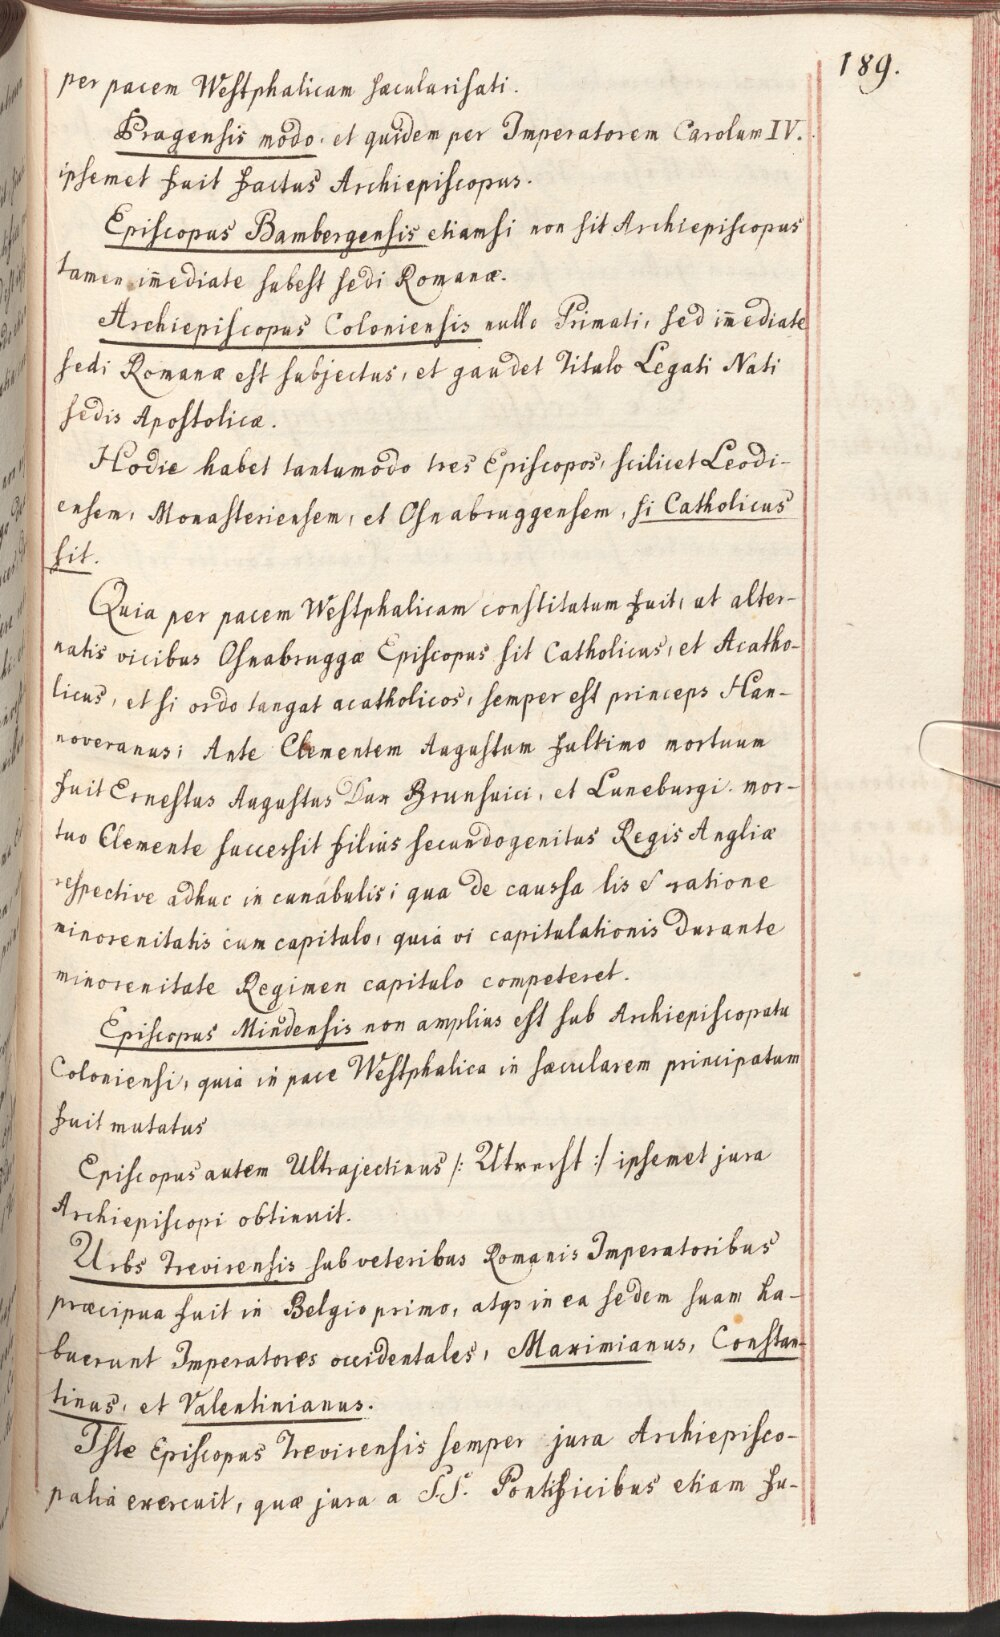 189.
per pacem Westphalicam sæcularisati.
Pragensis modo, et quidem per Imperatorem Carolum IV.
ipsemet fuit factus Archiepiscopus.
Episcopus Bambergensis etiamsi non sit Archiepiscopus
tamen im̄ediate subest sedi Romanæ.
Archiepiscopus Coloniensis nullo Primati, sed im̄ediate
sedi Romanæ est subjectus, et gaudet Titulo Legati Nati
sedis Apostolicæ.
Hodie habet tantumodo tres Episcopos, scilicet Leodi-
ensem, Monasteriensem, et Osnabruggensem, si Catholicus
sit.
Quia per pacem Westphalicam constitutum fuit, ut alter-
natis vicibus Osnabruggæ Episcopus sit Catholicus, et Acatho-
licus, et si ordo tangat acatholicos, semper est princeps Han-
noveranus; Ante Clementem Augustum fultimo mortuum
fuit Ernestus Augustus Dux Brunsuici, et Luneburgi. mor-
tuo Clemente successit filius secundogenitus Regis Angliæ
respective adhuc in cunabulis; qua de caussa lis é ratione
minorenitatis cum capitulo, quia vi capitulationis durante
minorenitate Regimen capitulo competeret.
Episcopus Mindensis non amplius est sub Archiepiscopatu
Coloniensi, quia in pace Westphalica in sæcularem principatum
fuit mutatus
Episcopus autem Ultrajectinus /: Utrecht :/ ipsemet jura
Archiepiscopi obtinuit.
Urbs Trevirensis sub veteribus Romanis Imperatoribus
præcipua fuit in Belgio primo, atqs in ea sedem suam ha-
buerunt Imperatores occidentales, Maximianus, Constan-
tinus, et Valentinianus.
Iste Episcopus Trevirensis semper jura Archiepisco-
palia exercuit, quæ jura a S.S. Pontificibus etiam fu-